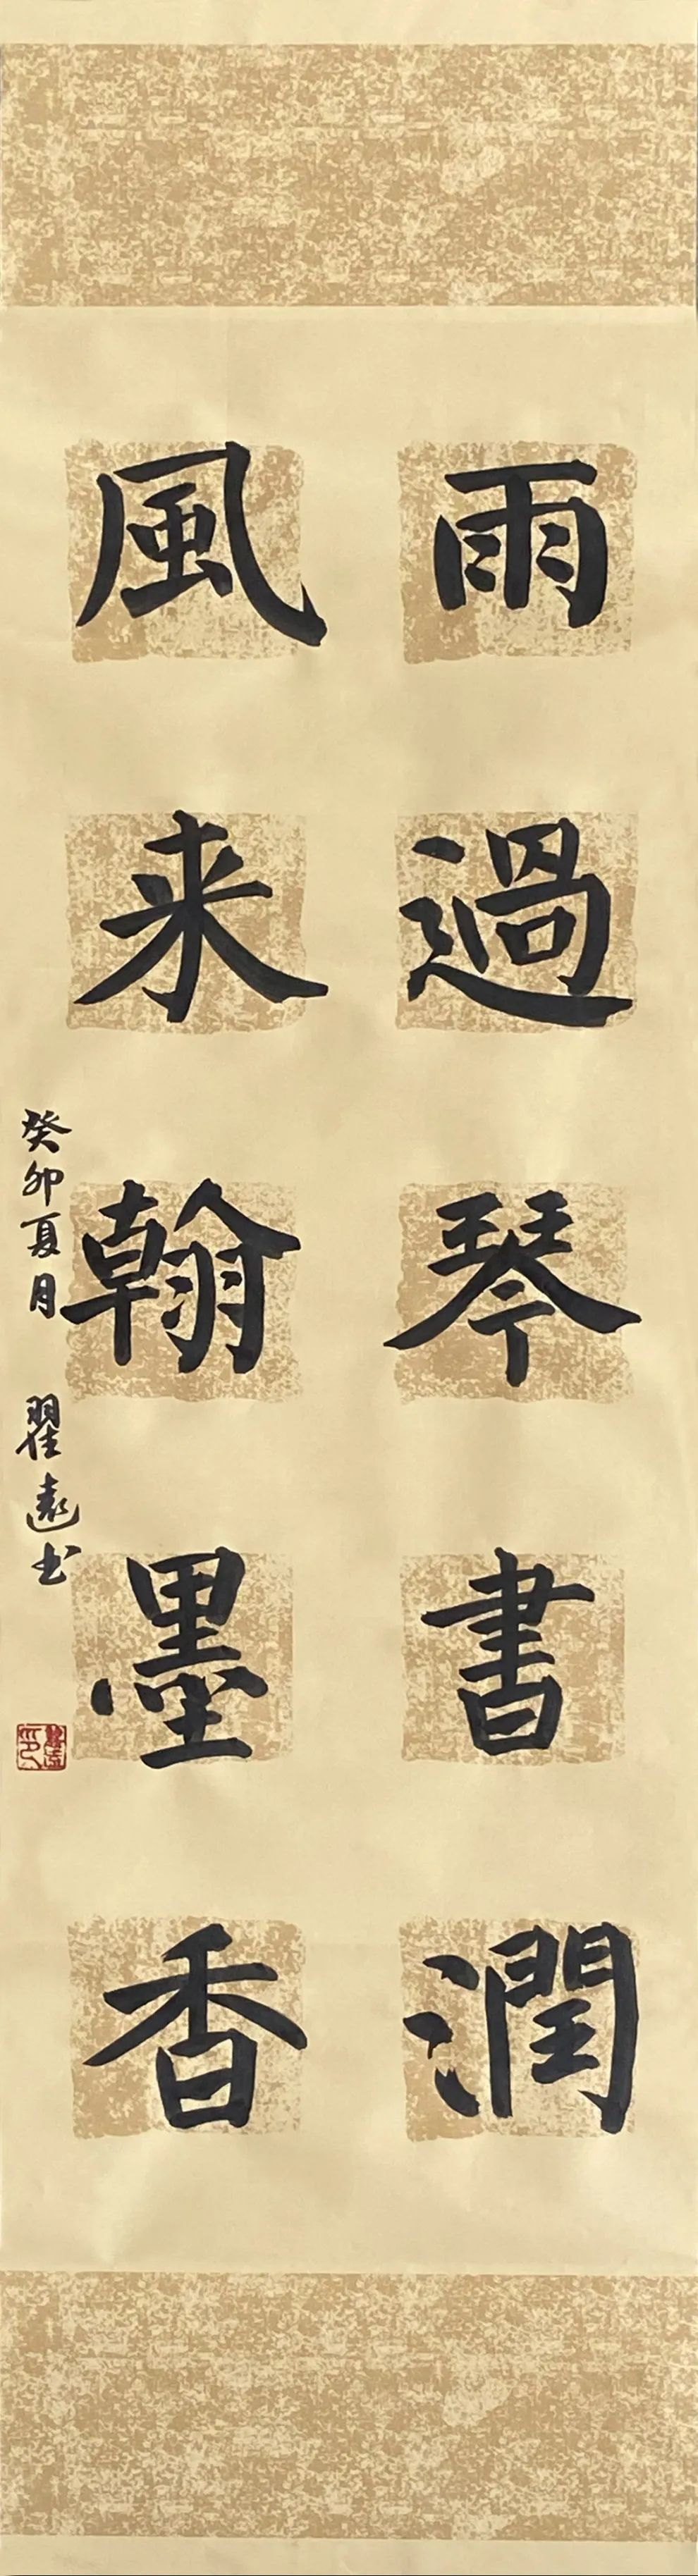 雨過琴書潤
風来翰墨香
癸卯夏月 翟遠书